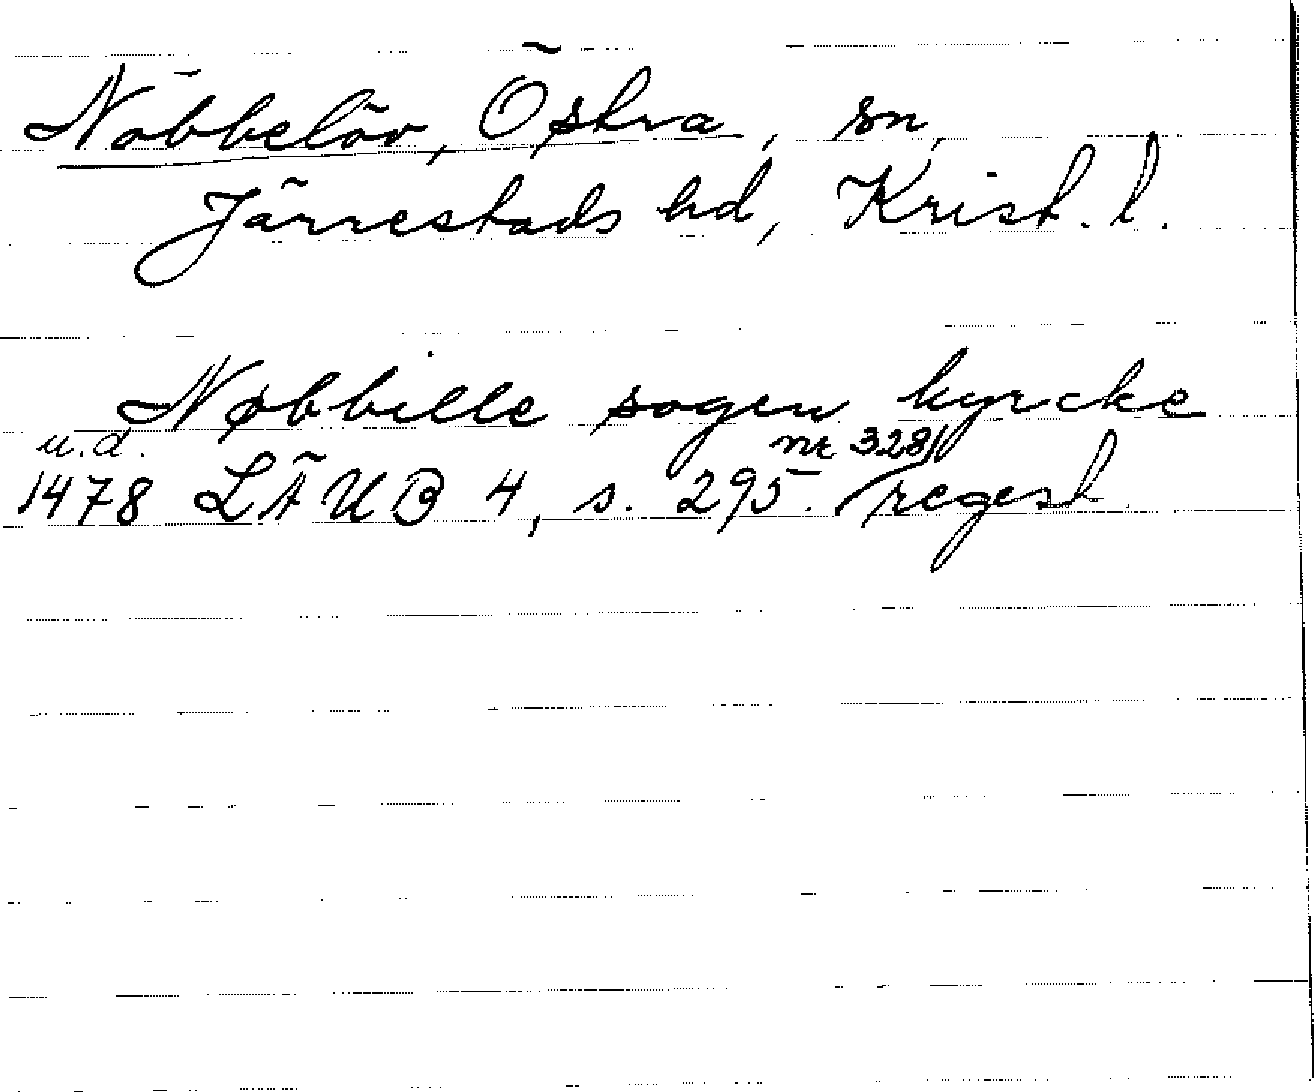 Nöbbelöv, Östra, sn,
Järrestads hd, Krist. l.
Nøbbille sogen kyrcke
u.d.
1478 LÄUB 4, s. 295. nr 328/regest